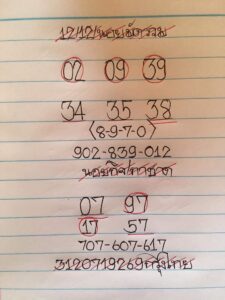 02 09 39
34 35 38
(8-9-7-0)
902-839-012
07 97
17 57
707-607-617
3120719269 กรุงไทย